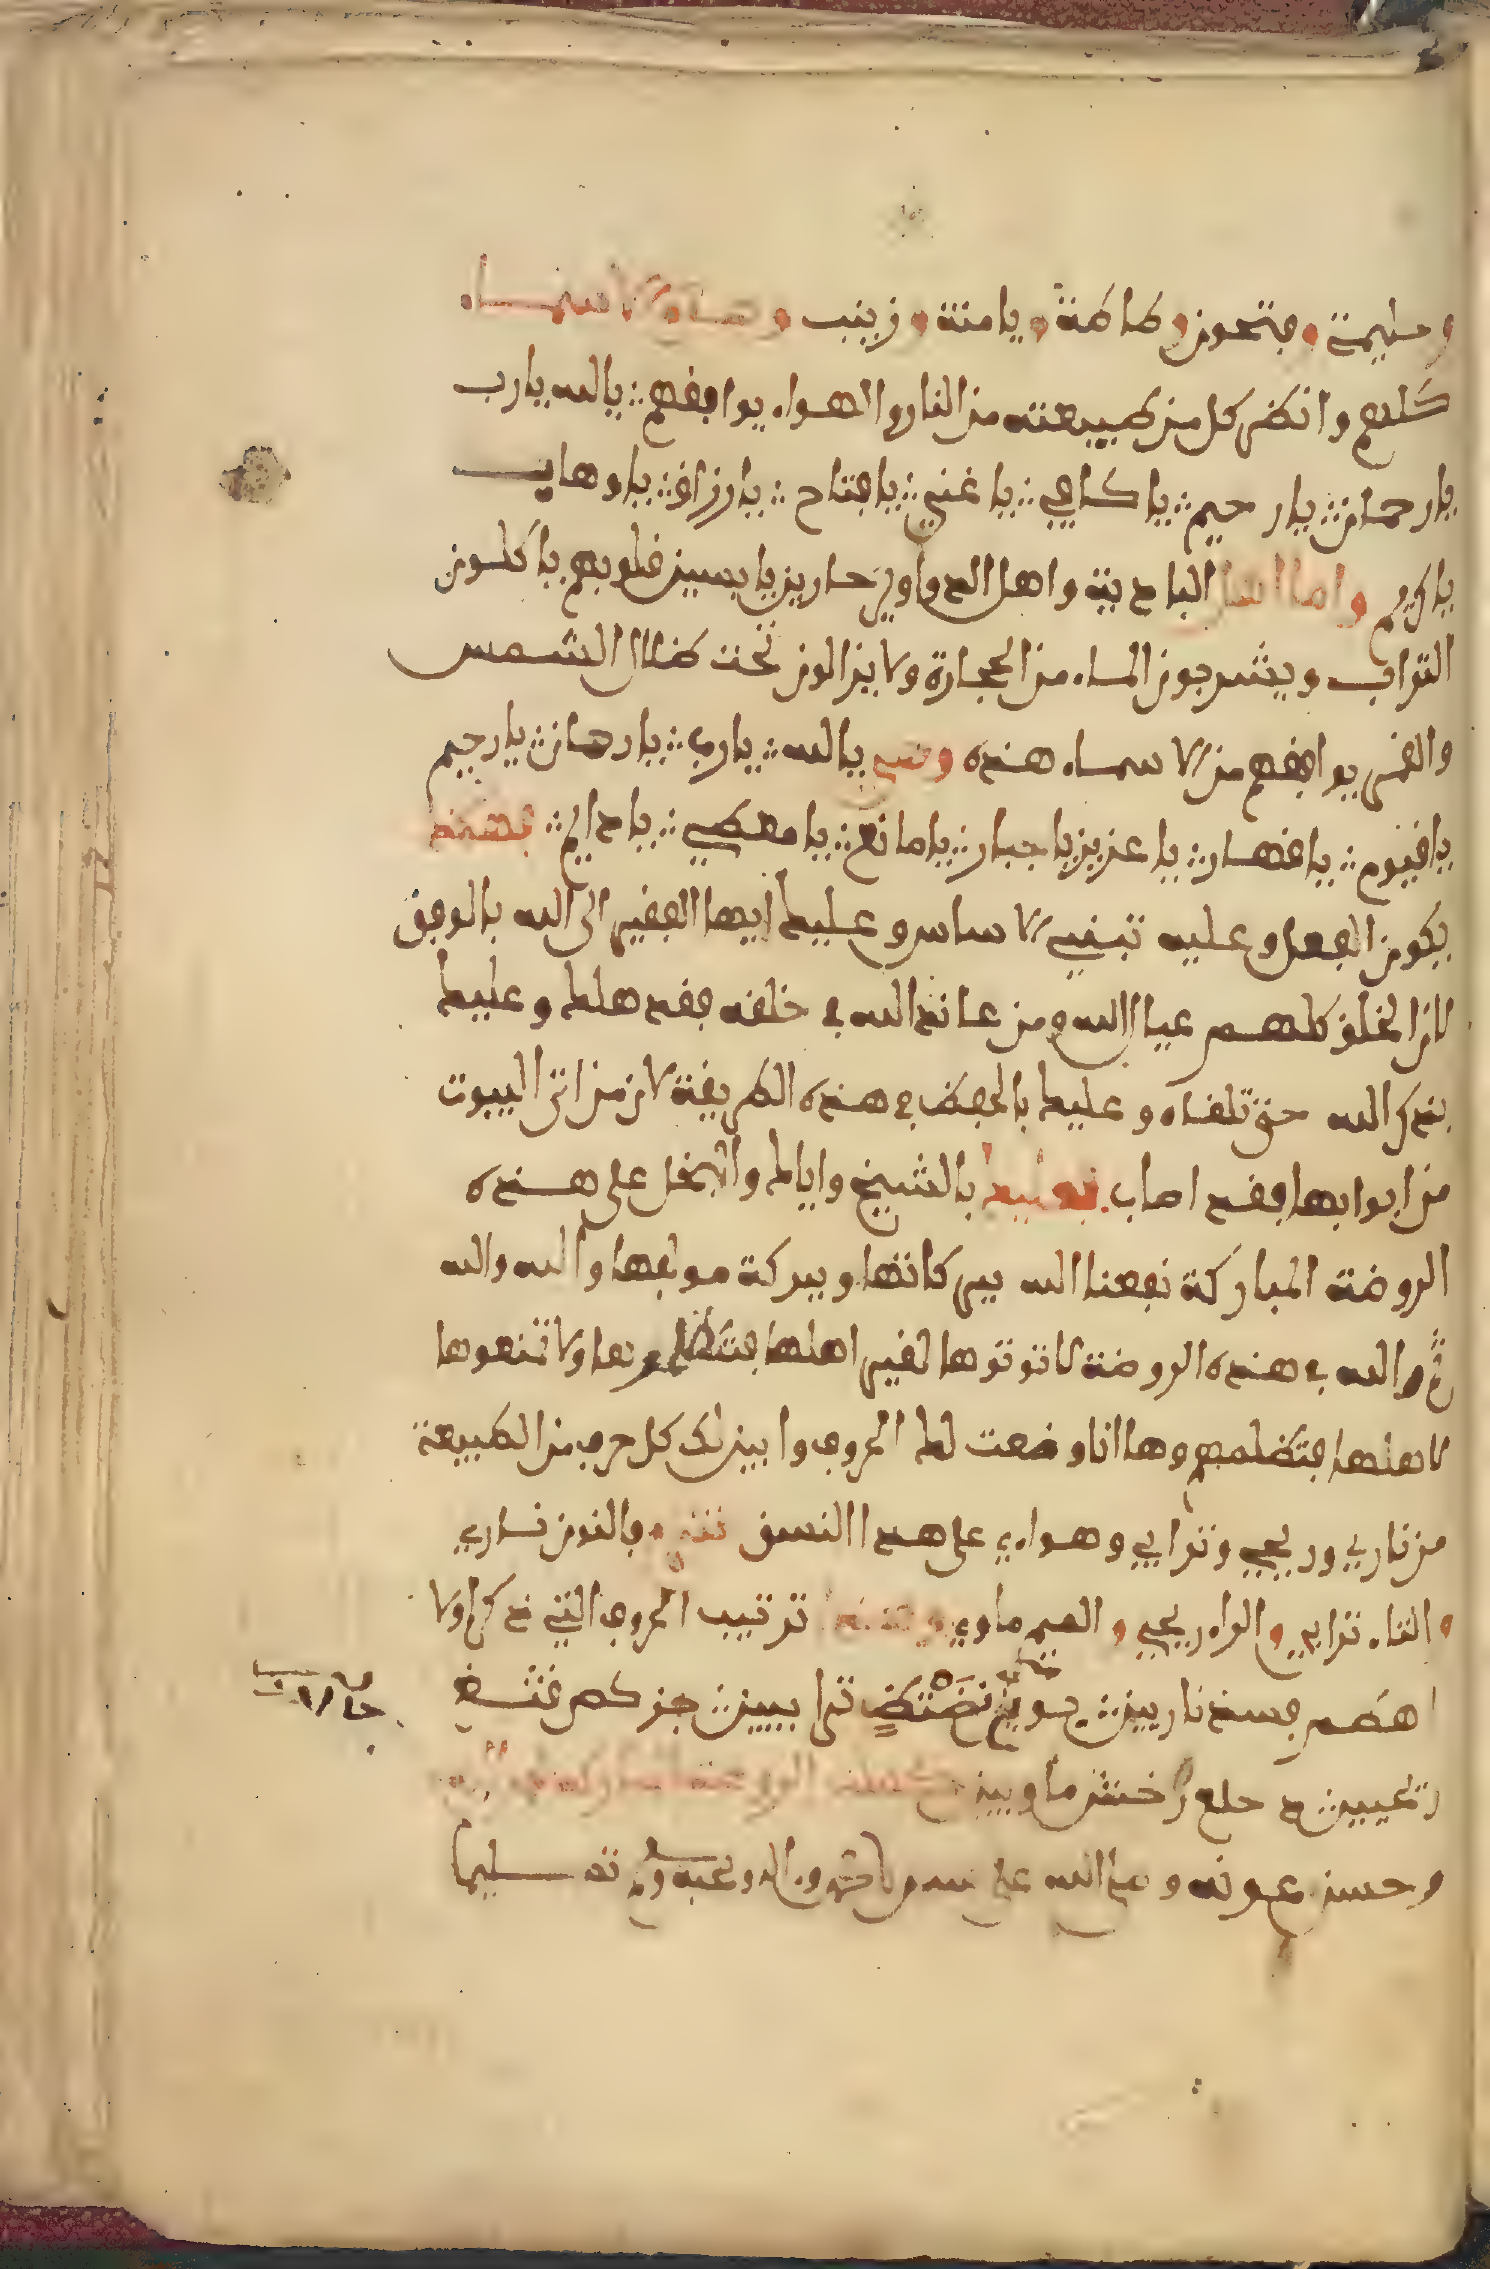 وحليمة وميمون وطاطة ويامنة وزينب وهذه الاسماء
كلهم وانظر كل من طبيعته من النار والهواء يوافقهم يالله يارب
يارحمان يارحيم ياكافي ياغني يافتاح يارزاق ياوهاب
ياكريم واما اهل البادية واهل حارين يابسين قلوبهم ياكلون
التراب ويشربون الماء من الحجارة ولا يزالون تحت ظلال الشمس
والقمر يوافقهم من الاسماء هذه وهي يالله يارب يارحمان يارحيم
ياقيوم ياقهار ياعزيز ياجبار يامانع يامعطي يادايم فهكذا
يكون العمل وعليه تبنى الاساس وعليك ايها الفقير الى الله بالوفق
لان الخلق كلهم عيال الله ومن عاند الله في خلقه فقد هلك وعليك
بذكر الله حتى تلقاه وعليك بالحفظ في هذه الطريقة لان من اتى البيوت
من ابوابها فقد اصاب فعليك بالشيخ واياك والبخل على هذه
الروضة المباركة نفعنا الله ببركاتها وببركة مولفها والله والله
ثم والله في هذه الروضة لا توتوها لغير اهلها فتظلمونها ولا تمنعوها
لاهلها فتظلمهم وها انا وضعت لك الحروف وابين لك كل حرف من الطبيعة
من ناري وريحي وترابي وهواءي على هذا النسق فالنون ناري
والتاء ترابي والراء ريحي والميم ماوي وهكذا ترتيب الحروف التي ذكر اولا
اهطم فسذ ناريين بوين نضتظ ترابيين جزكص غثسق
ريحيين دحلع رخش ماويين كملت الروضة المباركة بحمد الله
وحسن عونه وصلى الله على سيدنا محمد واله وصحبه وسلم تسليما